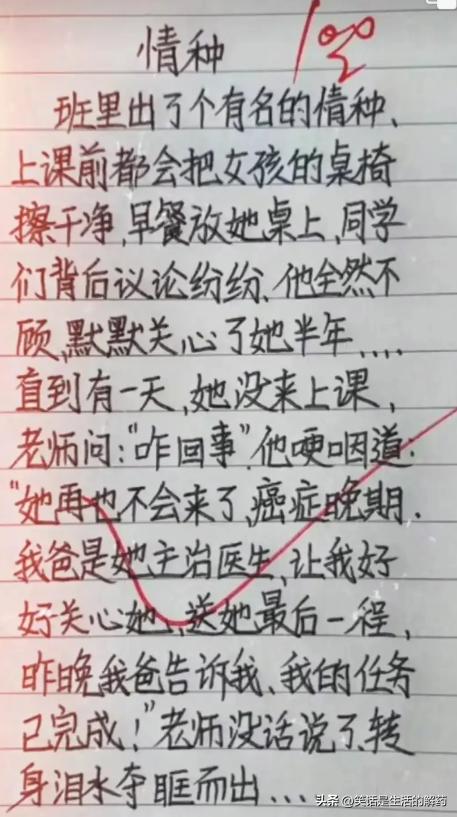 情种
100
班里出了个有名的情种、
上课前都会把女孩的桌椅
擦干净,早餐放她桌上,同学
们背后议论纷纷、他全然不
顾,默默关心了她半年....
直到有一天,她没来上课,
老师问:“咋回事”.他哽咽道:
“她再也不会来了,癌症晚期.
我爸是她主治医生,让我好
好关心她,送她最后一程,
昨晚我爸告诉我、我的任务
已完成!”老师没话说了、转
身泪水夺眶而出...
头条 @笑话是生活的解药